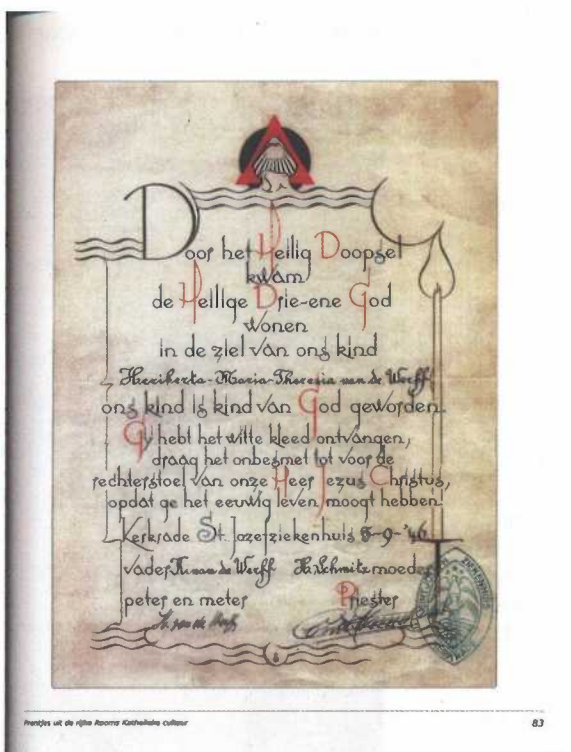 Door het Heilig Doopsel
kwam
de Heilige Drie-ene God
wonen
in de ziel van ons kind
Heriberta-Maria-Theresia van de Werff
ons kind is kind van God geworden.
Gij hebt het witte kleed ontvangen,
draag het onbesmet tot voor de
rechterstoel van onze Heer Jezus Christus,
opdat ge het eeuwig leven moogt hebben!
Kerkrade St. Jozefziekenhuis 8-9-'46
vader van de Werff H. Schmitz moeder
peter en meter Priester
van de Werff
Prentjes uit de rijke Rooms Katholieke cultuur
83